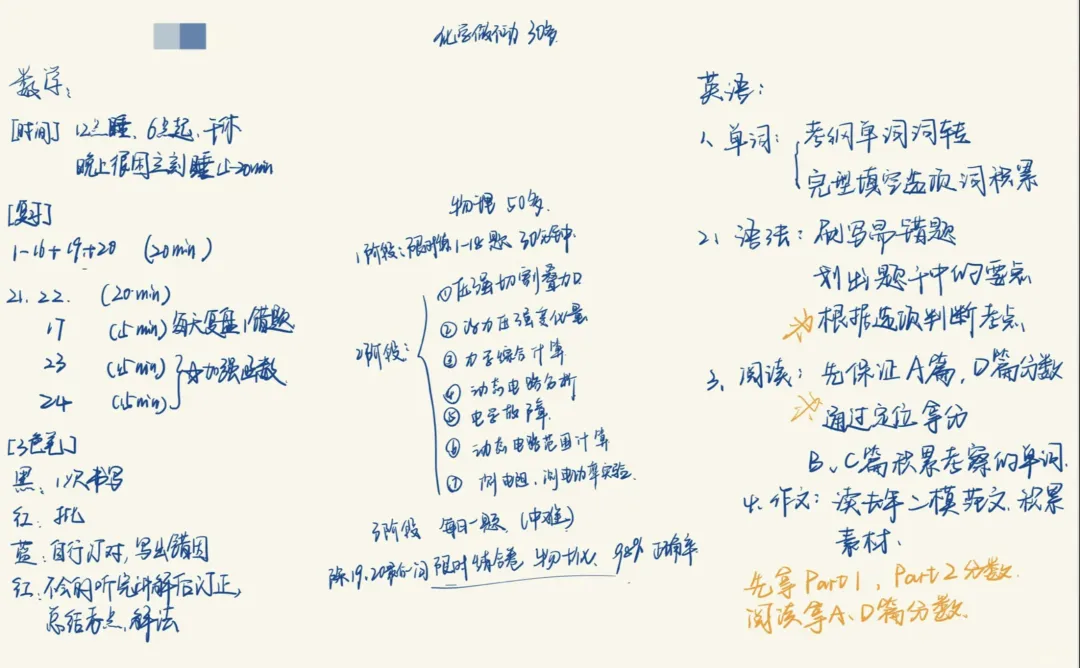 化学做不动 30多
数学:
[时间] 12点睡、6点起、午休
晚上很困立刻睡15-20min
[复习]
1-16+19+20 (20min)
21、22. (20min)
17 (15min) 每天复盘1错题
23 (15min) ☆加强函数
24 (15min)
[3色笔]
黑: 1次书写
红: 批
蓝: 自行订对,写出错因
红: 不会的听完讲解后订正,
总结考点、解法
物理 50多
1阶段: 限时练1-18题 30分钟.
2阶段:
①压强切割叠加
②浮力压强变化量
③力学综合计算
④动态电路分析
⑤电学故障
⑥动态电路范围计算
⑦测电阻、测电功率实验
3阶段 每日一题 (中难)
除19、20 限时 物 98% 正确率
英语:
1、单词: 考纲单词词转
完型填空选项词积累
2、语法: 错题
划出题干中的要点
根据选项判断考点
3、阅读: 先保证A篇、D篇分数
通过定位拿分
B、C篇积累考察的单词
4、作文: 读去年二模范文、积累
素材、
先拿Part1, Part2分数.
阅读拿A、D篇分数.